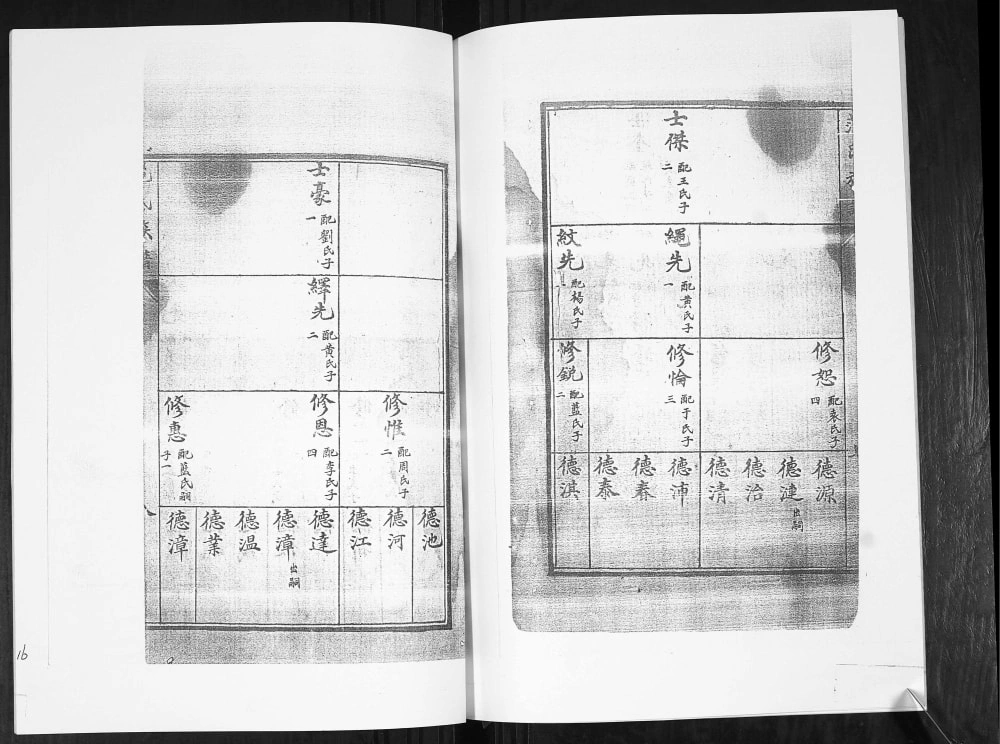 士傑 配王氏子二
繩先 配黄氏子一
紋先 配楊氏子
修恕 配袁氏子四
修惀 配于氏子三
修銳 配藍氏子二
德源
德漣 出嗣
德治
德清
德沛
德春
德泰
德淇
士豪 配劉氏子一
繹先 配黄氏子二
修惟 配周氏子二
修恩 配李氏子四
修惠 配藍氏嗣子一
德池
德河
德江
德達
德漳 出嗣
德温
德業
德漳
氏族譜
16